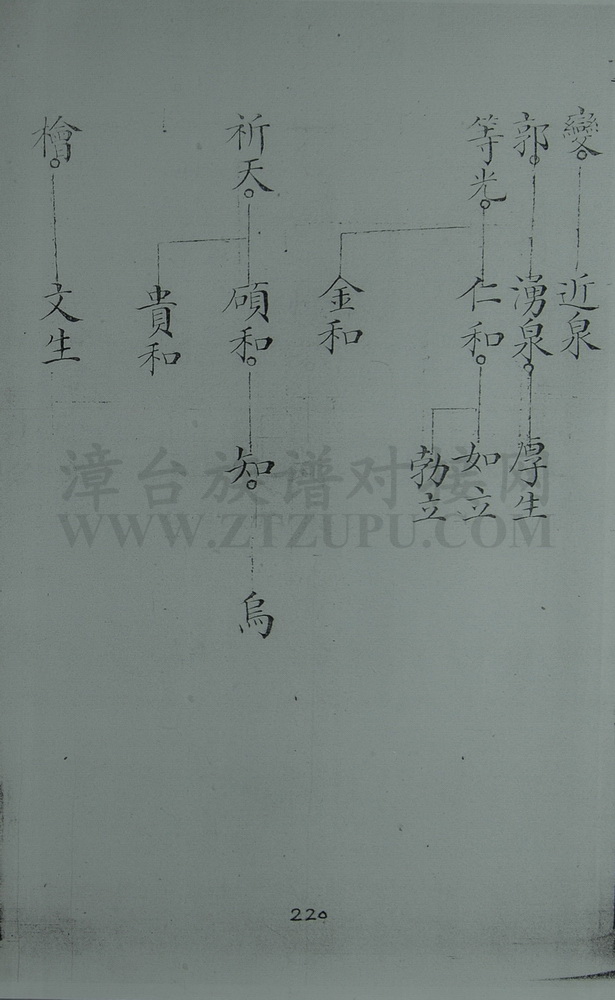 變
近泉
郭
湧泉
厚生
等光
仁和
如立
勃立
金和
祈天
碩和
知
烏
貴和
檜
文生
漳台族谱对接网
WWW.ZTZUPU.COM
220